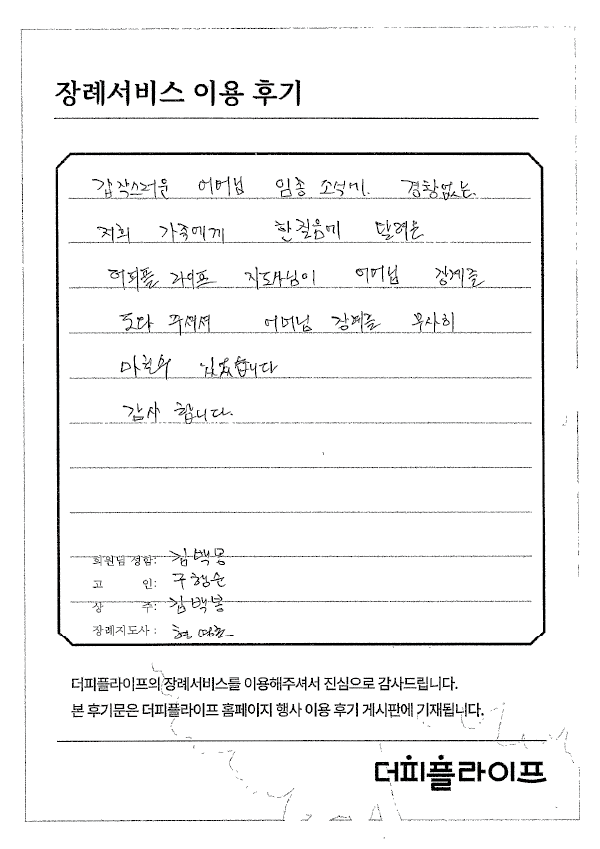 장례서비스 이용 후기
갑작스러운 어머님 임종 소식에. 경황없는
저희 가족에게 한걸음에 달려온
더피플 라이프 지도사님이 어머님 장례를
도와 주셔서 어머님 장례를 무사히
마칠수 있었습니다
감사 합니다.
회원님 성함: 김백봉
고 인: 구행순
상 주: 김백봉
장례지도사 : 현
더피플라이프의 장례서비스를 이용해주셔서 진심으로 감사드립니다.
본 후기문은 더피플라이프 홈페이지 행사 이용 후기 게시판에 기재됩니다.
더피플라이프